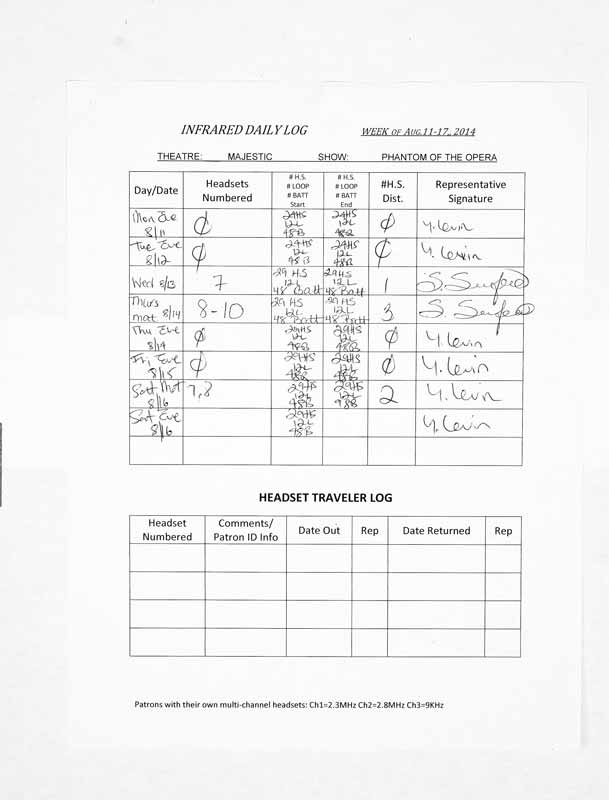 INFRARED DAILY LOG WEEK OF AUG.11-17, 2014
THEATRE: MAJESTIC SHOW: PHANTOM OF THE OPERA
Day/Date Headsets Numbered # H.S. # LOOP # BATT Start # H.S. # LOOP # BATT End #H.S. Dist. Representative Signature
Mon Eve 8/11 Ø 29HS 12L 48B 29HS 12L 48B Ø Y. Levin
Tue Eve 8/12 Ø 29HS 12L 48B 29HS 12L 48B Ø Y. Levin
Wed 8/13 7 29 H.S 12L 48 Batt 29 H.S 12L 48 Batt 1 S.
Thurs mat 8/14 8-10 29 HS 12L 48 Batt 29 HS 12L 48 Batt 3 S.
Thu Eve 8/14 Ø 29HS 12L 48B 29HS 12L 48B Ø Y. Levin
Fri Eve 8/15 Ø 29HS 12L 48B 29HS 12L 48B Ø Y. Levin
Sat Mat 8/16 7,8 29HS 12L 48B 29HS 12L 2 Y. Levin
Sat Eve 8/16 29HS 12L 48B Y. Levin
HEADSET TRAVELER LOG
Headset Numbered Comments/ Patron ID Info Date Out Rep Date Returned Rep
Patrons with their own multi-channel headsets: Ch1=2.3MHz Ch2=2.8MHz Ch3=9KHz